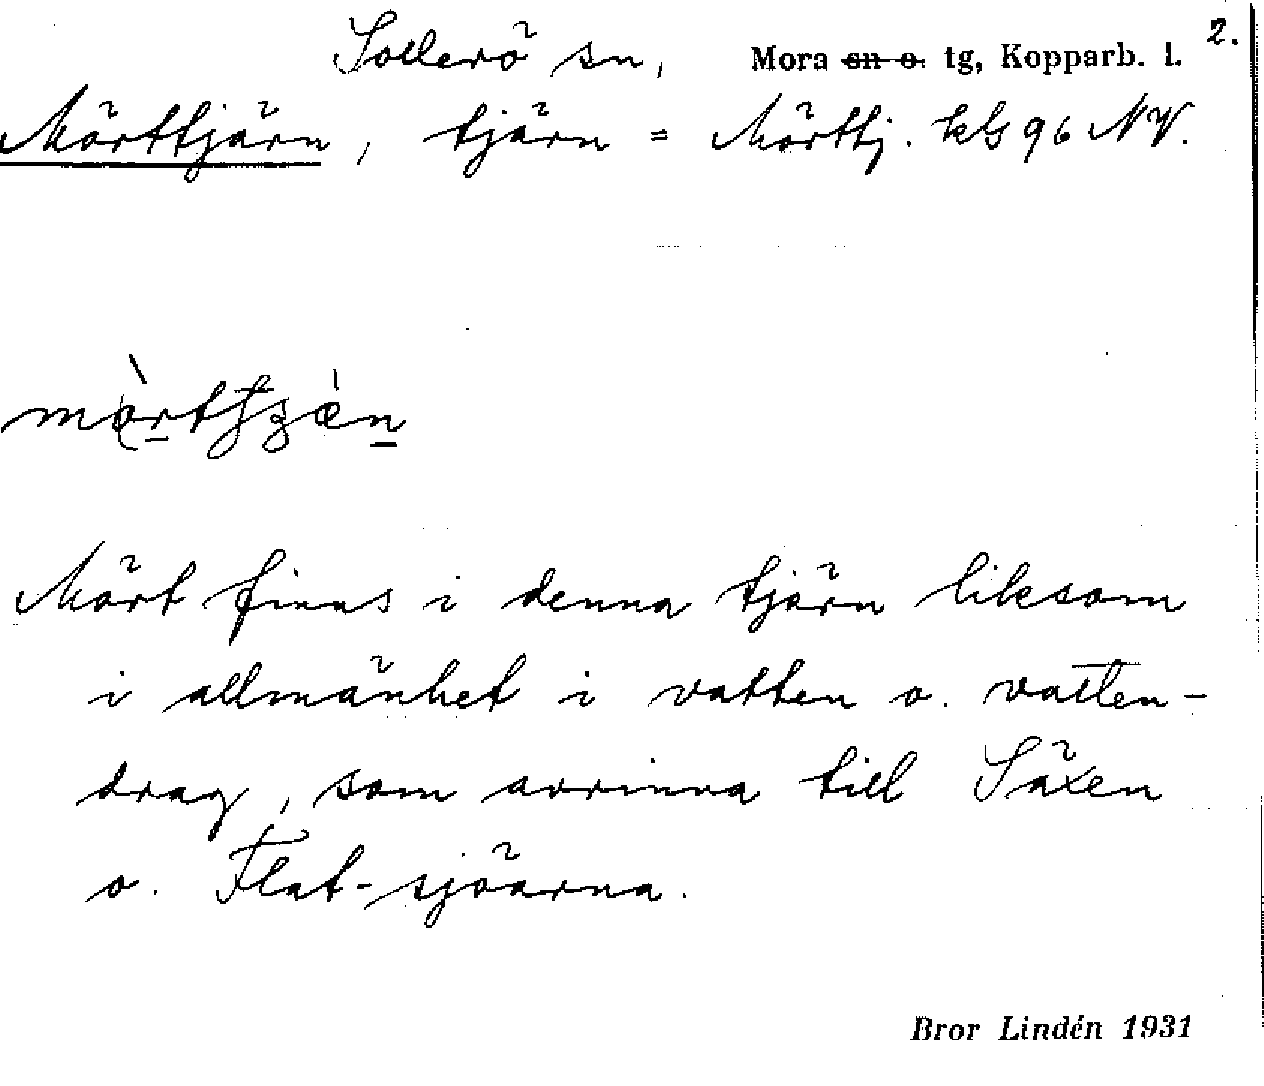 2.
Sollerö sn, Mora sn o. tg, Kopparb. l.
Mörttjärn, tjärn = Mörttj. kbl 96 NV.
Mört finns i denna tjärn liksom
i allmänhet i vatten o. vatten-
drag, som avrinna till Säxen
o. Flat-sjöarna.
Bror Lindén 1931